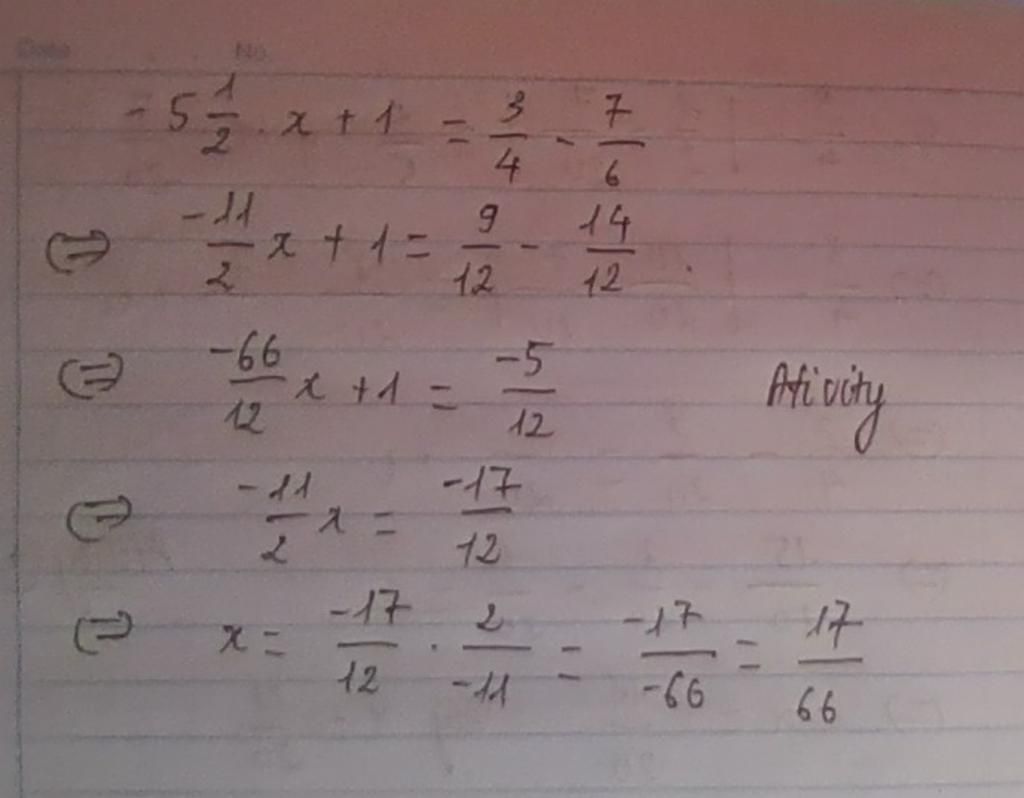 Date No.
- 5 1/2 . x + 1 = 3/4 - 7/6
⇔ -11/2 x + 1 = 9/12 - 14/12 .
⇔ -66/12 x + 1 = -5/12 Ativity
⇔ -11/2 x = -17/12
⇔ x = -17/12 . 2/-11 = -17/-66 = 17/66